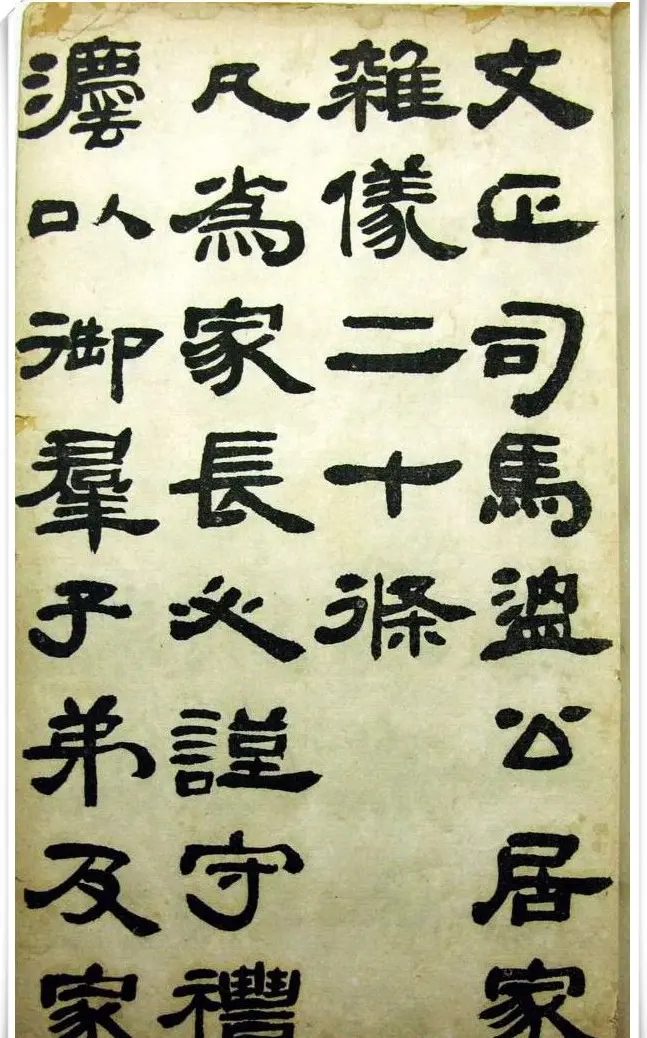 文正司馬溫公居家
雜儀二十條
凡為家長必謹守禮
灋以御羣子弟及家